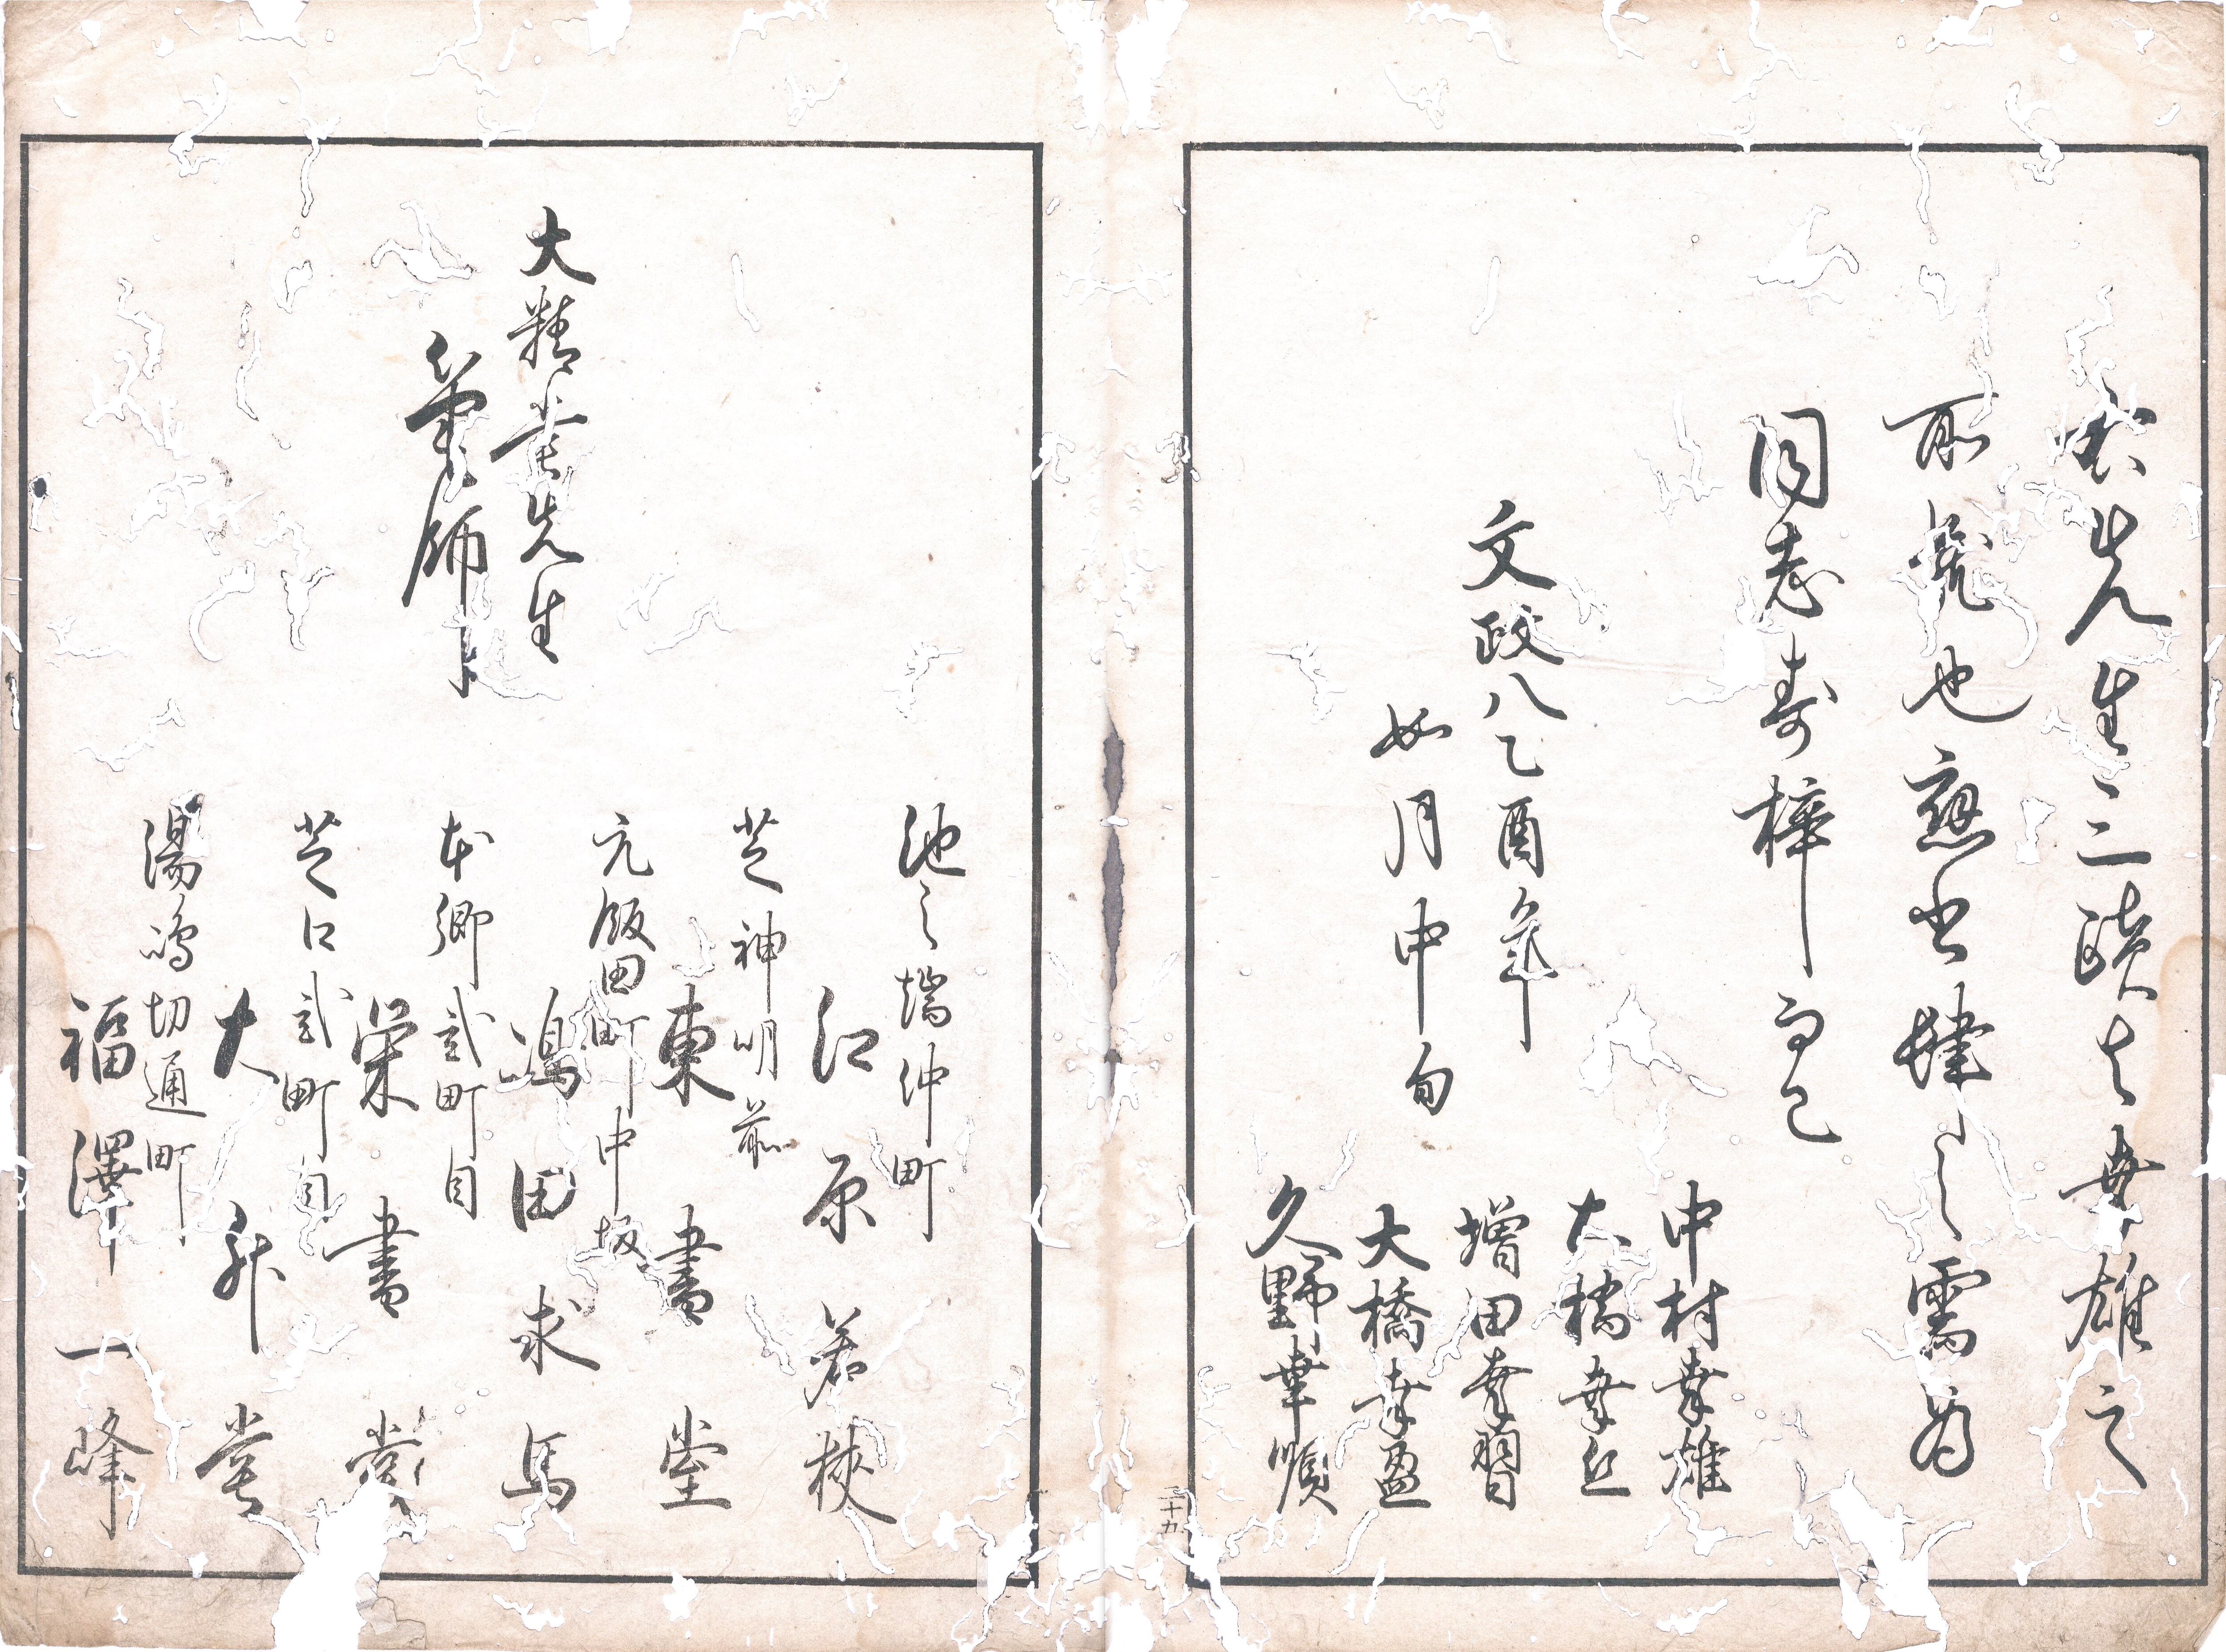 先生三跡者幸雄之
所 也應書肆之需為
同志壽梓而已
文政八乙酉年
如月中旬
中村幸雄
大橋幸丘
增田幸習
大橋幸盈
久野幸順
三十九
大精堂先生
筆師
池之端仲町
江原若狭
芝神明前
東書堂
元飯田町中坂
嶋田求馬
本郷弐町目
栄書堂
芝口弐町目
大升堂
湯嶋切通町
福澤一峰